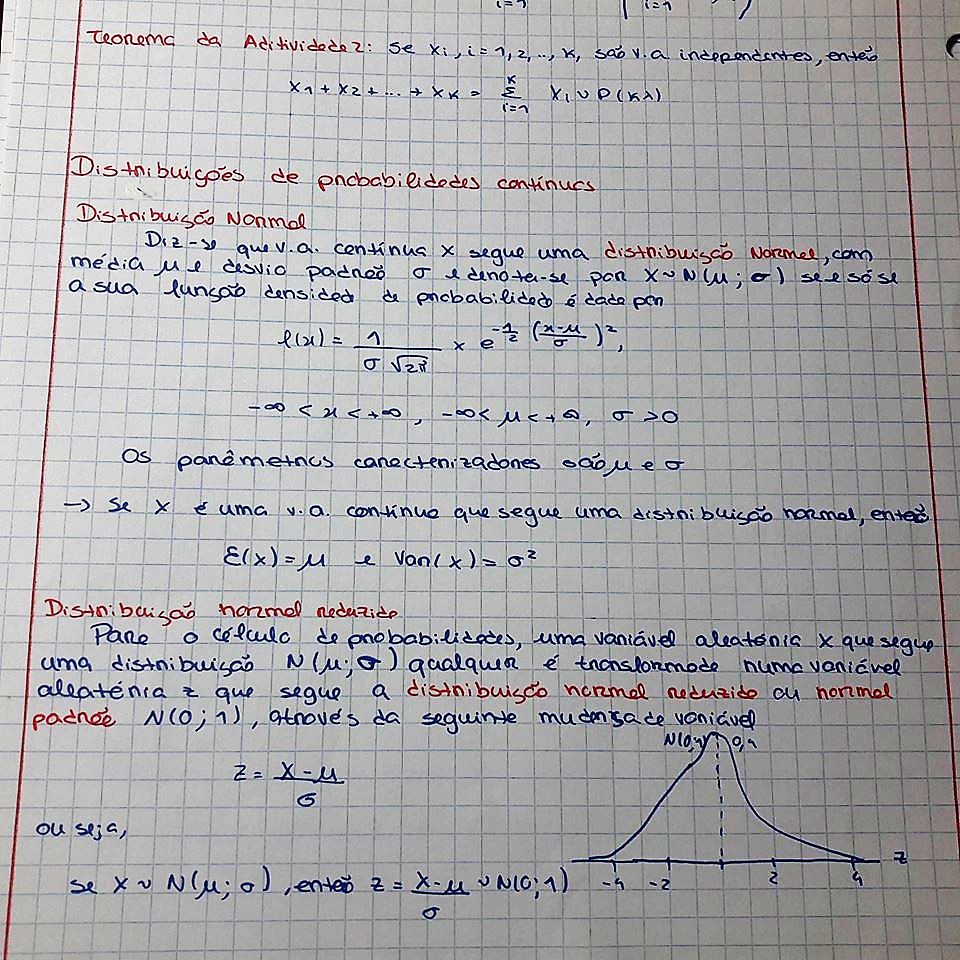 i=1 i=1
Teorema da Aditividade 2: Se Xi, i=1,2,..., K, são v.a independentes, então
X1 + X2 + ... + XK = K Σ i=1 Xi ∪ P(Kλ)
Distribuições de probabilidades contínuas
Distribuição Normal
Diz-se que v.a. contínua X segue uma distribuição Normal, com
média μ e desvio padrão σ e denota-se por X ~ N(μ; σ) se e só se
a sua função densidade de probabilidade é dada por
f(x) = 1/(σ√2π) × e^(-1/2 ((x-μ)/σ)²),
-∞ < x < +∞, -∞ < μ < +∞, σ > 0
Os parâmetros caracterizadores são μ e σ
→ Se X é uma v.a. contínua que segue uma distribuição normal, então
E(X) = μ e Var(X) = σ²
Distribuição normal reduzida
Para o cálculo de probabilidades, uma variável aleatória X que segue
uma distribuição N(μ; σ) qualquer é transformada numa variável
aleatória z que segue a distribuição normal reduzida ou normal
padrão N(0; 1), através da seguinte mudança de variável
N(0,1) 0,4
Z = (X - μ)/σ
ou seja,
se X ∪ N(μ; σ), então Z = (X - μ)/σ ∪ N(0; 1)
-4 -2 2 4 Z